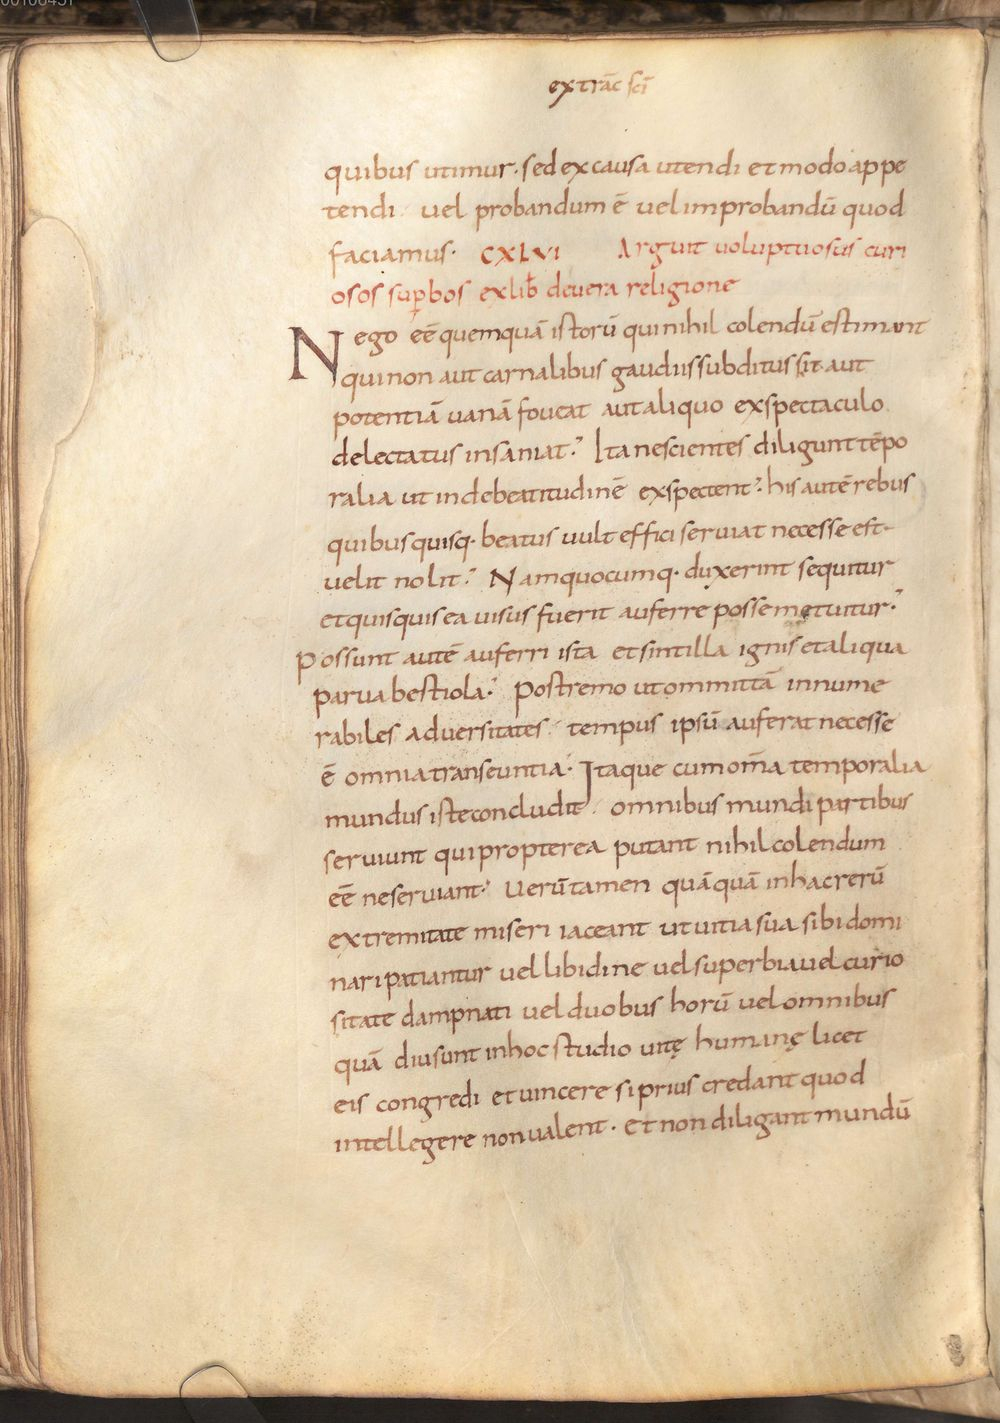 ex trāc scī
quibus utimur · sed ex causa utendi et modo appe
tendi · uel probandum ē uel improbandū quod
faciamus · CXLVI Arguit uoluptuosus curi
osos sup̱bos ex lib̄ de uera religione
Nego eē̄ quemquā istorū qui nihil colendū estimant
qui non aut carnalibus gaudiis subditus sit aut
potentiā uanā foueat aut aliquo exspectaculo
delectatus insaniat. Ita nescientes diligunt tēpo
ralia ut inde beatitudinē exspectent. his autē rebus
quibus quisq· beatus uult effici seruiat necesse est
uelit nolit. Nam quocumq· duxerint sequitur
et quisquis ea uisus fuerit auferre posse metuitur.
Possunt autē auferri ista et sintilla ignis et aliqua
parua bestiola. Postremo ut ommittā innume
rabiles aduersitates · tempus ipsū auferat necesse
ē omnia transeuntia. Itaque cum om̄a temporalia
mundus iste concludit · omnibus mundi partibus
seruiunt qui propterea putant nihil colendum
eē̄ ne seruiant. Uerūtamen quāquā in hac rerū
extremitate miseri iaceant ut uitia sua sibi domi
nari patiantur uel libidine uel superbia uel curio
sitate dampnati uel duobus horū uel omnibus
quādiu sunt in hoc studio uitę humanę licet
eis congredi et uincere si prius credant quod
intellegere non ualent · et non diligant mundū